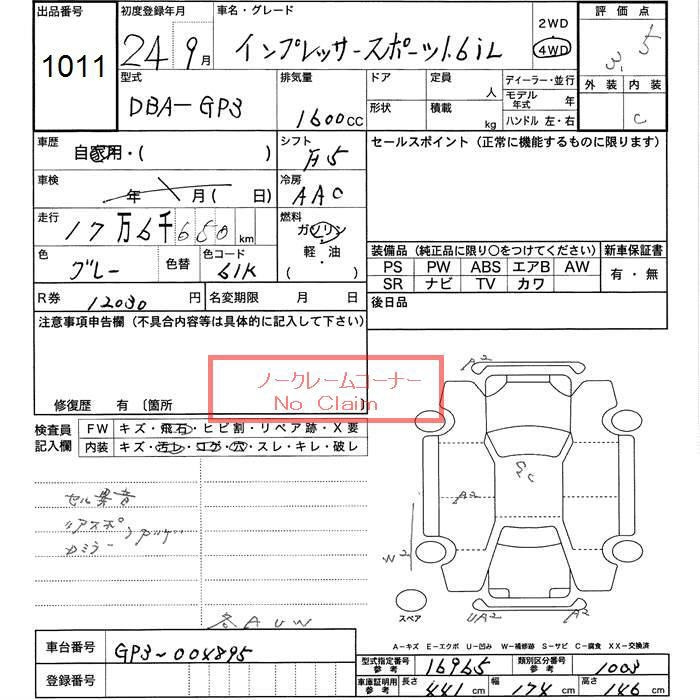 出品番号 初度登録年月 車名・グレード 2WD 評価点
1011 24 9月 インプレッサースポーツ1.6iL 4WD 3.5
型式 排気量 ドア 定員 人 ディーラー・並行 外装 内装
DBA-GP3 1600cc 形状 積載 kg モデル年式 年 C
ハンドル 左・右
車歴 自家用・( ) シフト F5 セールスポイント (正常に機能するものに限ります)
車検 年 月( 日) 冷房 AAC
走行 17万6千650km 燃料 ガソリン
軽・油
( )
色 グレー 色替 色コード 61K 装備品 (純正品に限り○をつけてください) 新車保証書
PS PW ABS エアB AW 有・無
SR ナビ TV カワ
R券 12030円 名変期限 月 日 後日品
注意事項申告欄 (不具合内容等は具体的に記入して下さい)
ノークレームコーナー
No Claim
修復歴 有 〔箇所
検査員記入欄 FW キズ・飛石・ヒビ割・リペア跡・X要
内装 キズ・汚レ・コゲ・穴・スレ・キレ・破レ
A2
セル異音
リアスポ アゲ
カミラー
A2
W2
スペア UA2 A2
各AUW
A-キズ E-エクボ U-凹み W-補修跡 S-サビ C-腐食 XX-交換済
車台番号 GP3-004895 型式指定番号 参考 16965 類別区分番号 参考 1003
登録番号 車庫証明用 参考 長さ 441cm 幅 174cm 高さ 146cm